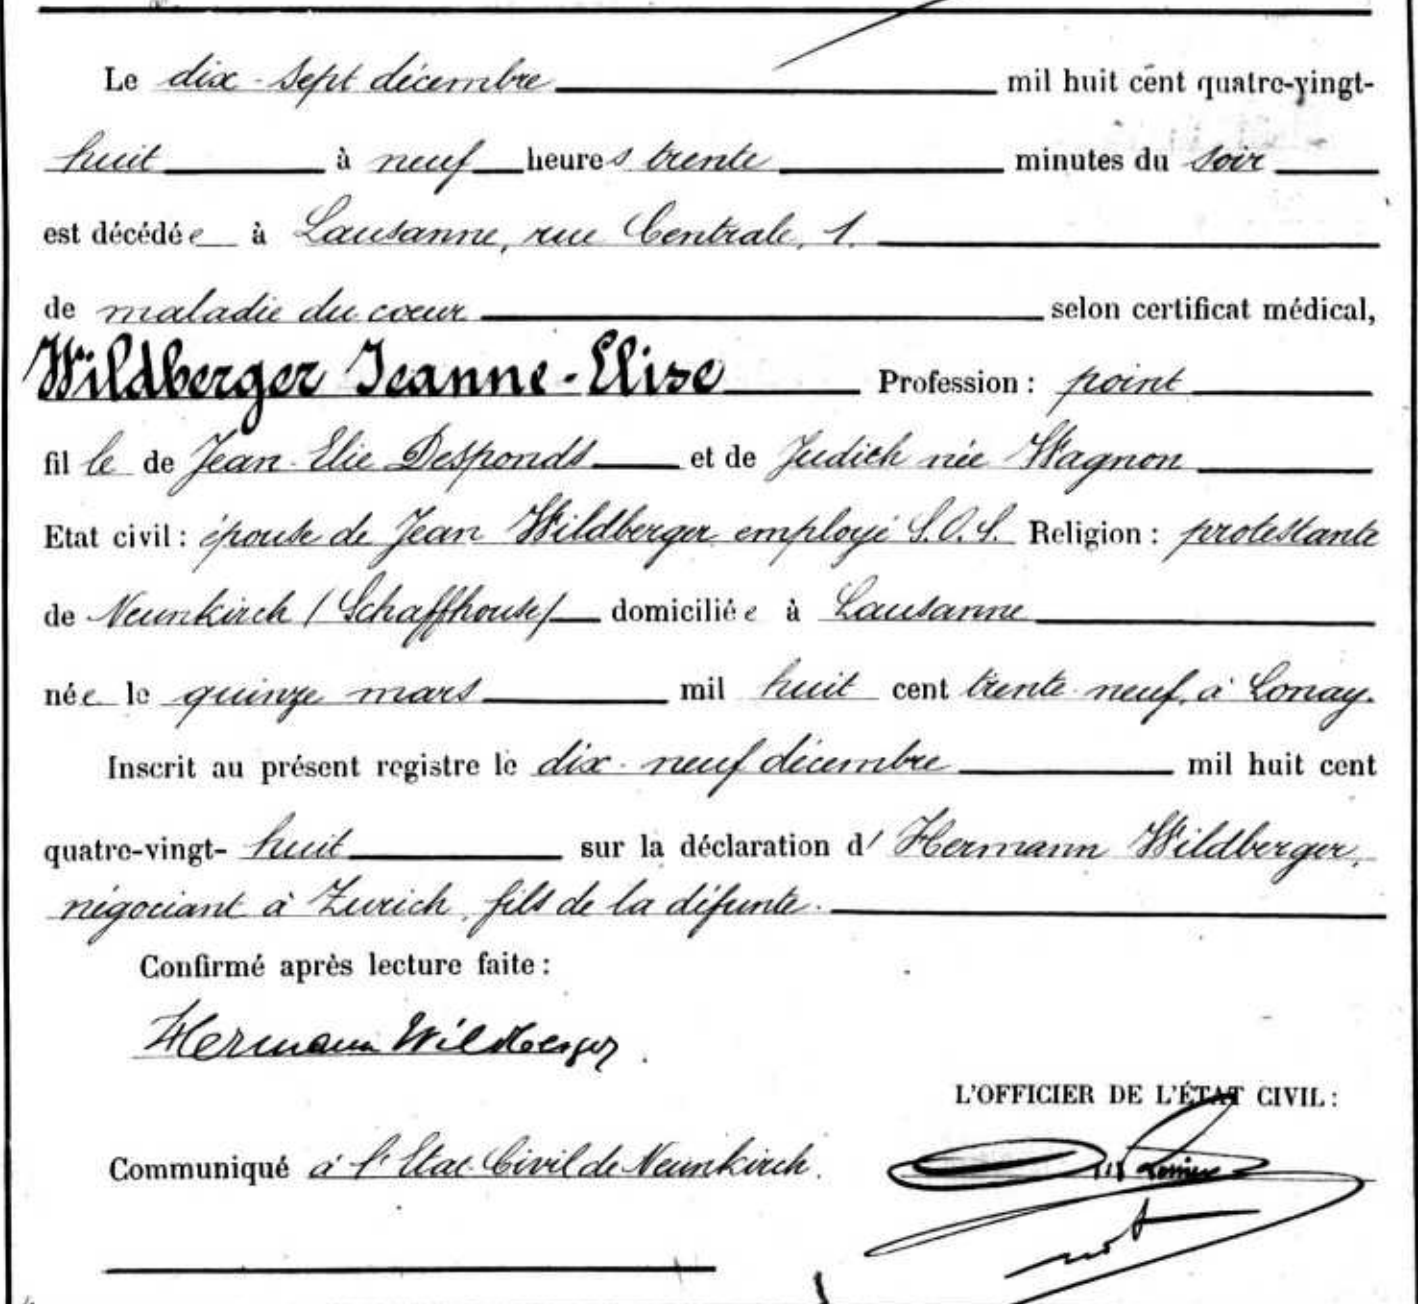 Le dix-sept décembre mil huit cent quatre-vingt-
huit à neuf heures trente minutes du soir
est décédée à Lausanne, rue Centrale, 1.
de maladie du cœur selon certificat médical,
Wildberger Jeanne-Elise Profession : point
fille de Jean-Elie Desponds et de Judich née Wagnon
Etat civil : épouse de Jean Wildberger employé S.O.S. Religion : protestante
de Neunkirch (Schaffhouse) domiciliée à Lausanne
née le quinze mars mil huit cent trente-neuf, à Lonay.
Inscrit au présent registre le dix-neuf décembre mil huit cent
quatre-vingt-huit sur la déclaration d'Hermann Wildberger,
négociant à Zurich, fils de la défunte.
Confirmé après lecture faite :
Hermann Wildberger.
L'OFFICIER DE L'ÉTAT CIVIL :
Communiqué à l'Etat-Civil de Neunkirch.